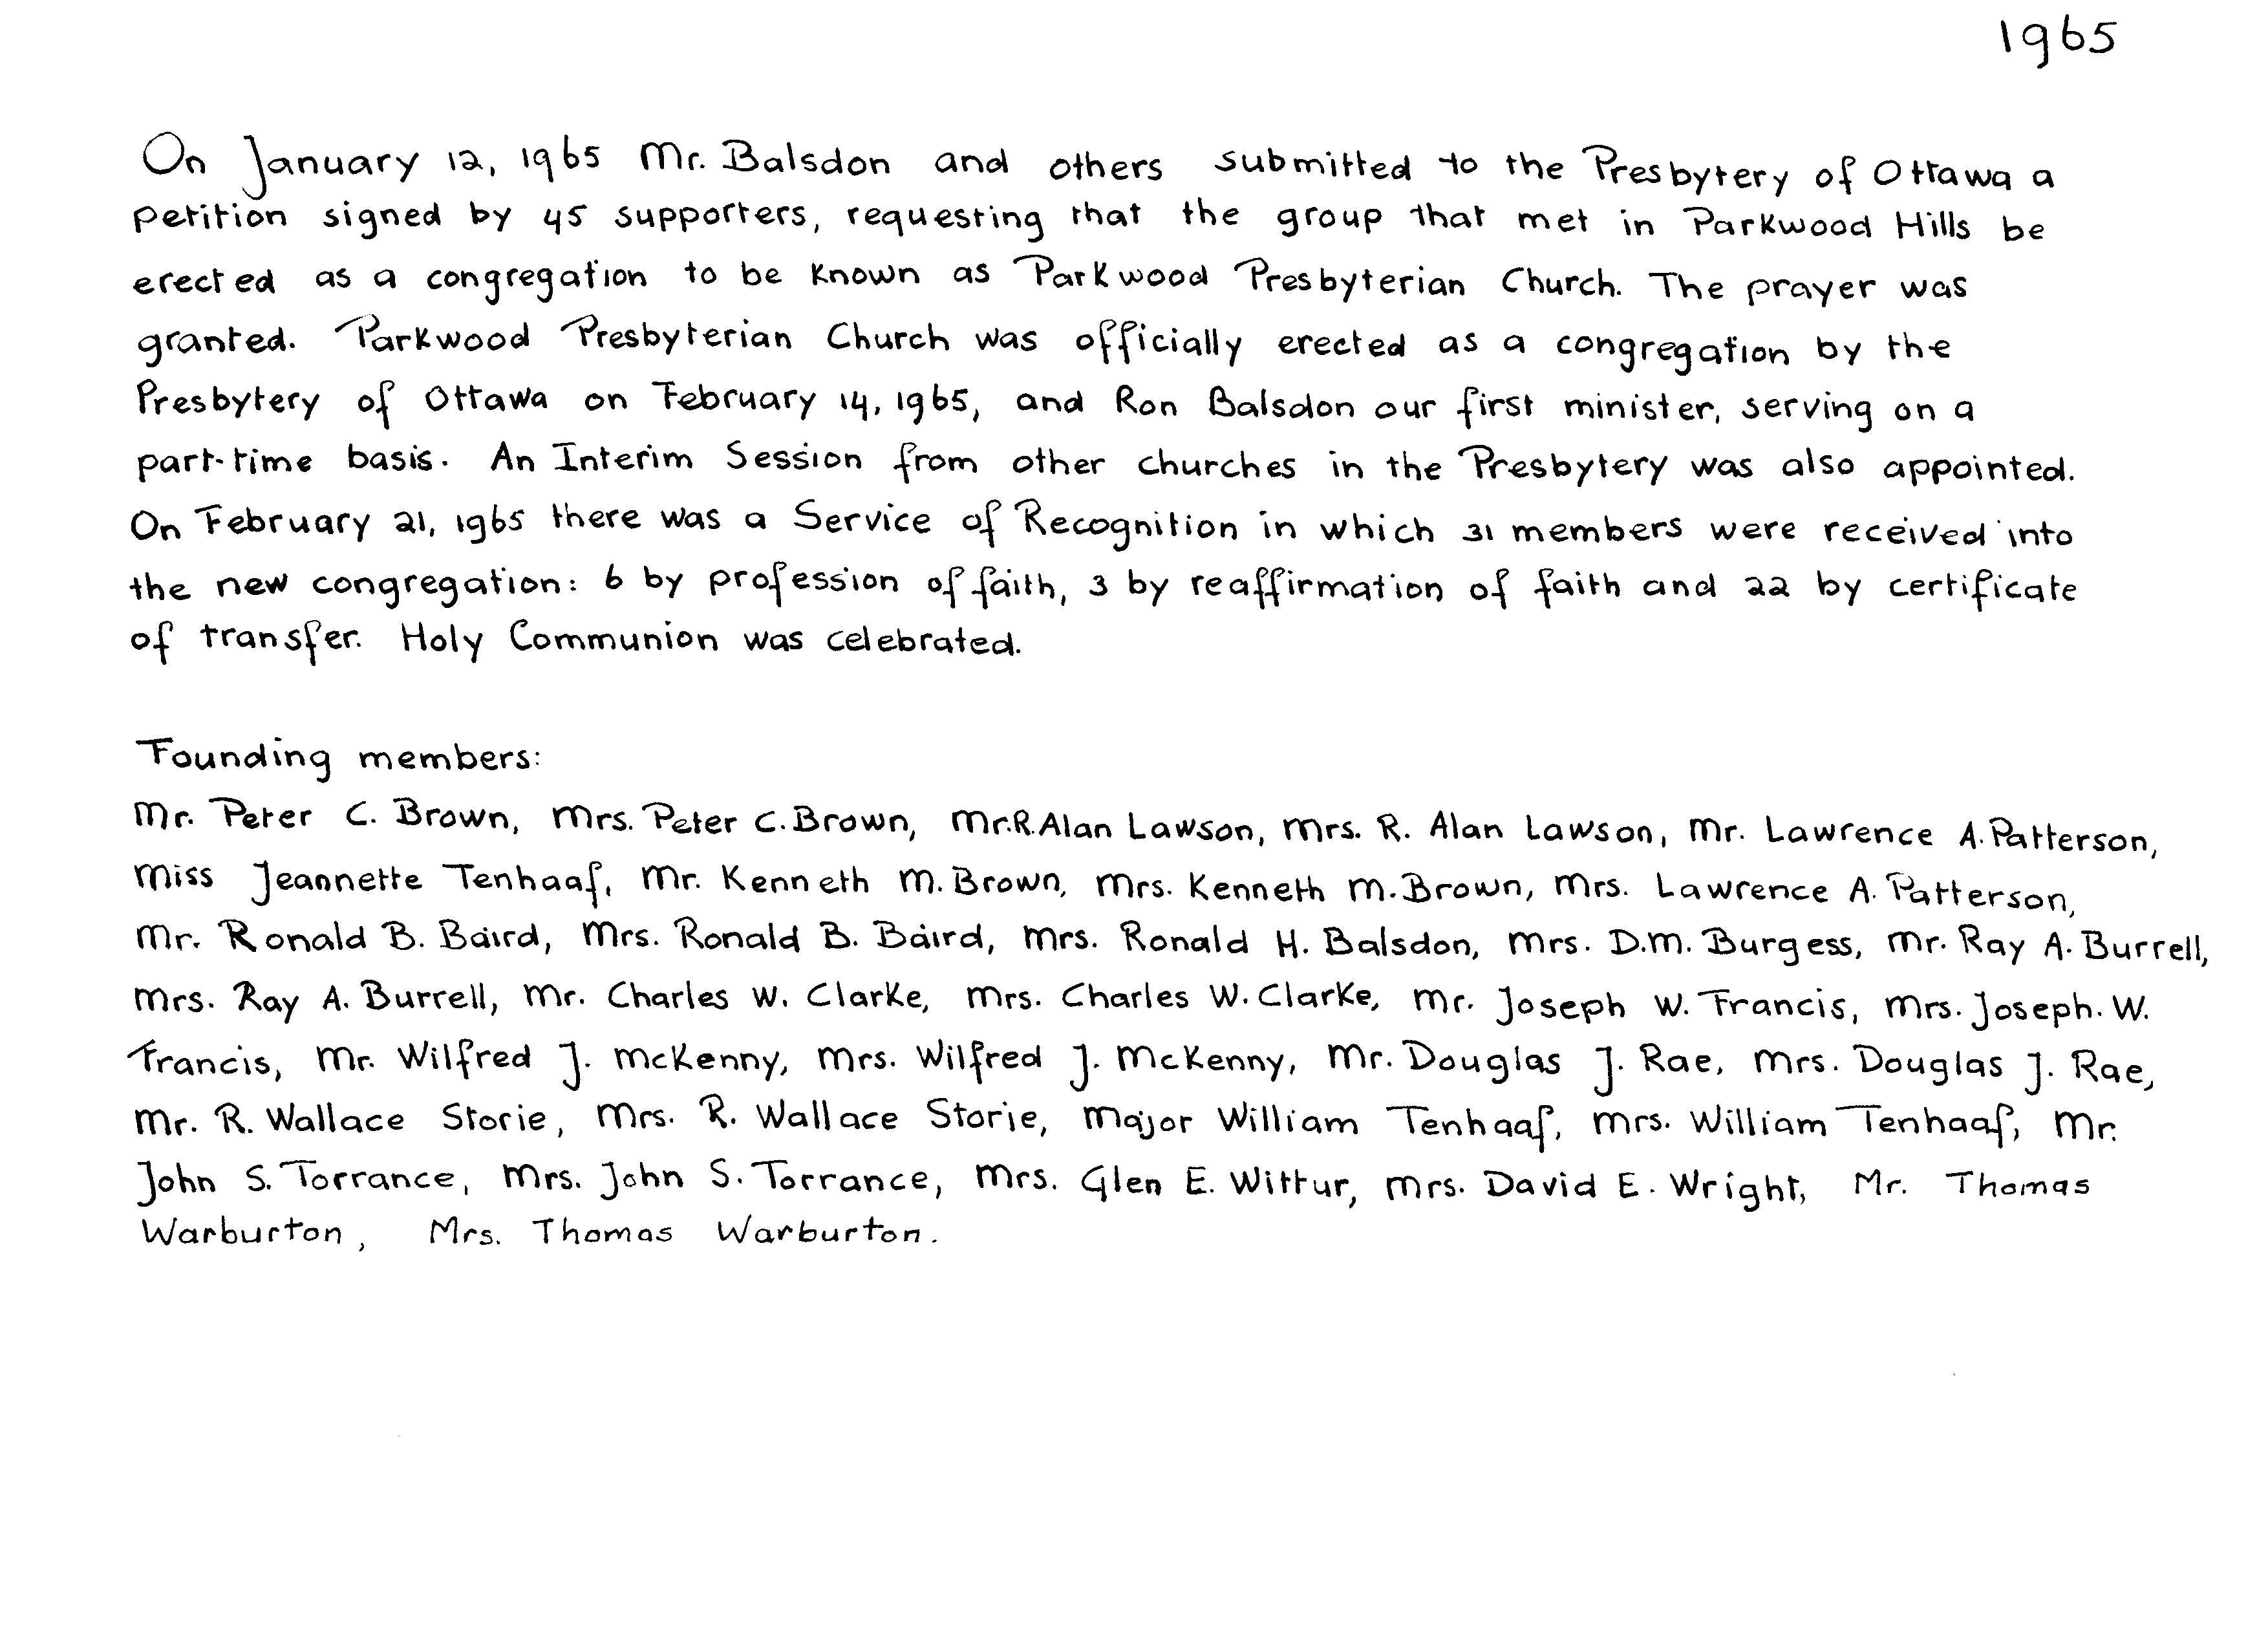 1965
On January 12, 1965 Mr. Balsdon and others submitted to the Presbytery of Ottawa a
petition signed by 45 supporters, requesting that the group that met in Parkwood Hills be
erected as a congregation to be known as Parkwood Presbyterian Church. The prayer was
granted. Parkwood Presbyterian Church was officially erected as a congregation by the
Presbytery of Ottawa on February 14, 1965, and Ron Balsdon our first minister, serving on a
part-time basis. An Interim Session from other churches in the Presbytery was also appointed.
On February 21, 1965 there was a Service of Recognition in which 31 members were received into
the new congregation: 6 by profession of faith, 3 by reaffirmation of faith and 22 by certificate
of transfer. Holy Communion was celebrated.
Founding members:
Mr. Peter C. Brown, Mrs. Peter C. Brown, Mr. R. Alan Lawson, Mrs. R. Alan Lawson, Mr. Lawrence A. Patterson,
Miss Jeannette Tenhaaf, Mr. Kenneth M. Brown, Mrs. Kenneth M. Brown, Mrs. Lawrence A. Patterson,
Mr. Ronald B. Baird, Mrs. Ronald B. Baird, Mrs. Ronald H. Balsdon, Mrs. D.M. Burgess, Mr. Ray A. Burrell,
Mrs. Ray A. Burrell, Mr. Charles W. Clarke, Mrs. Charles W. Clarke, Mr. Joseph W. Francis, Mrs. Joseph. W.
Francis, Mr. Wilfred J. McKenny, Mrs. Wilfred J. McKenny, Mr. Douglas J. Rae, Mrs. Douglas J. Rae,
Mr. R. Wallace Storie, Mrs. R. Wallace Storie, Major William Tenhaaf, Mrs. William Tenhaaf, Mr.
John S. Torrance, Mrs. John S. Torrance, Mrs. Glen E. Wittur, Mrs. David E. Wright, Mr. Thomas
Warburton, Mrs. Thomas Warburton.